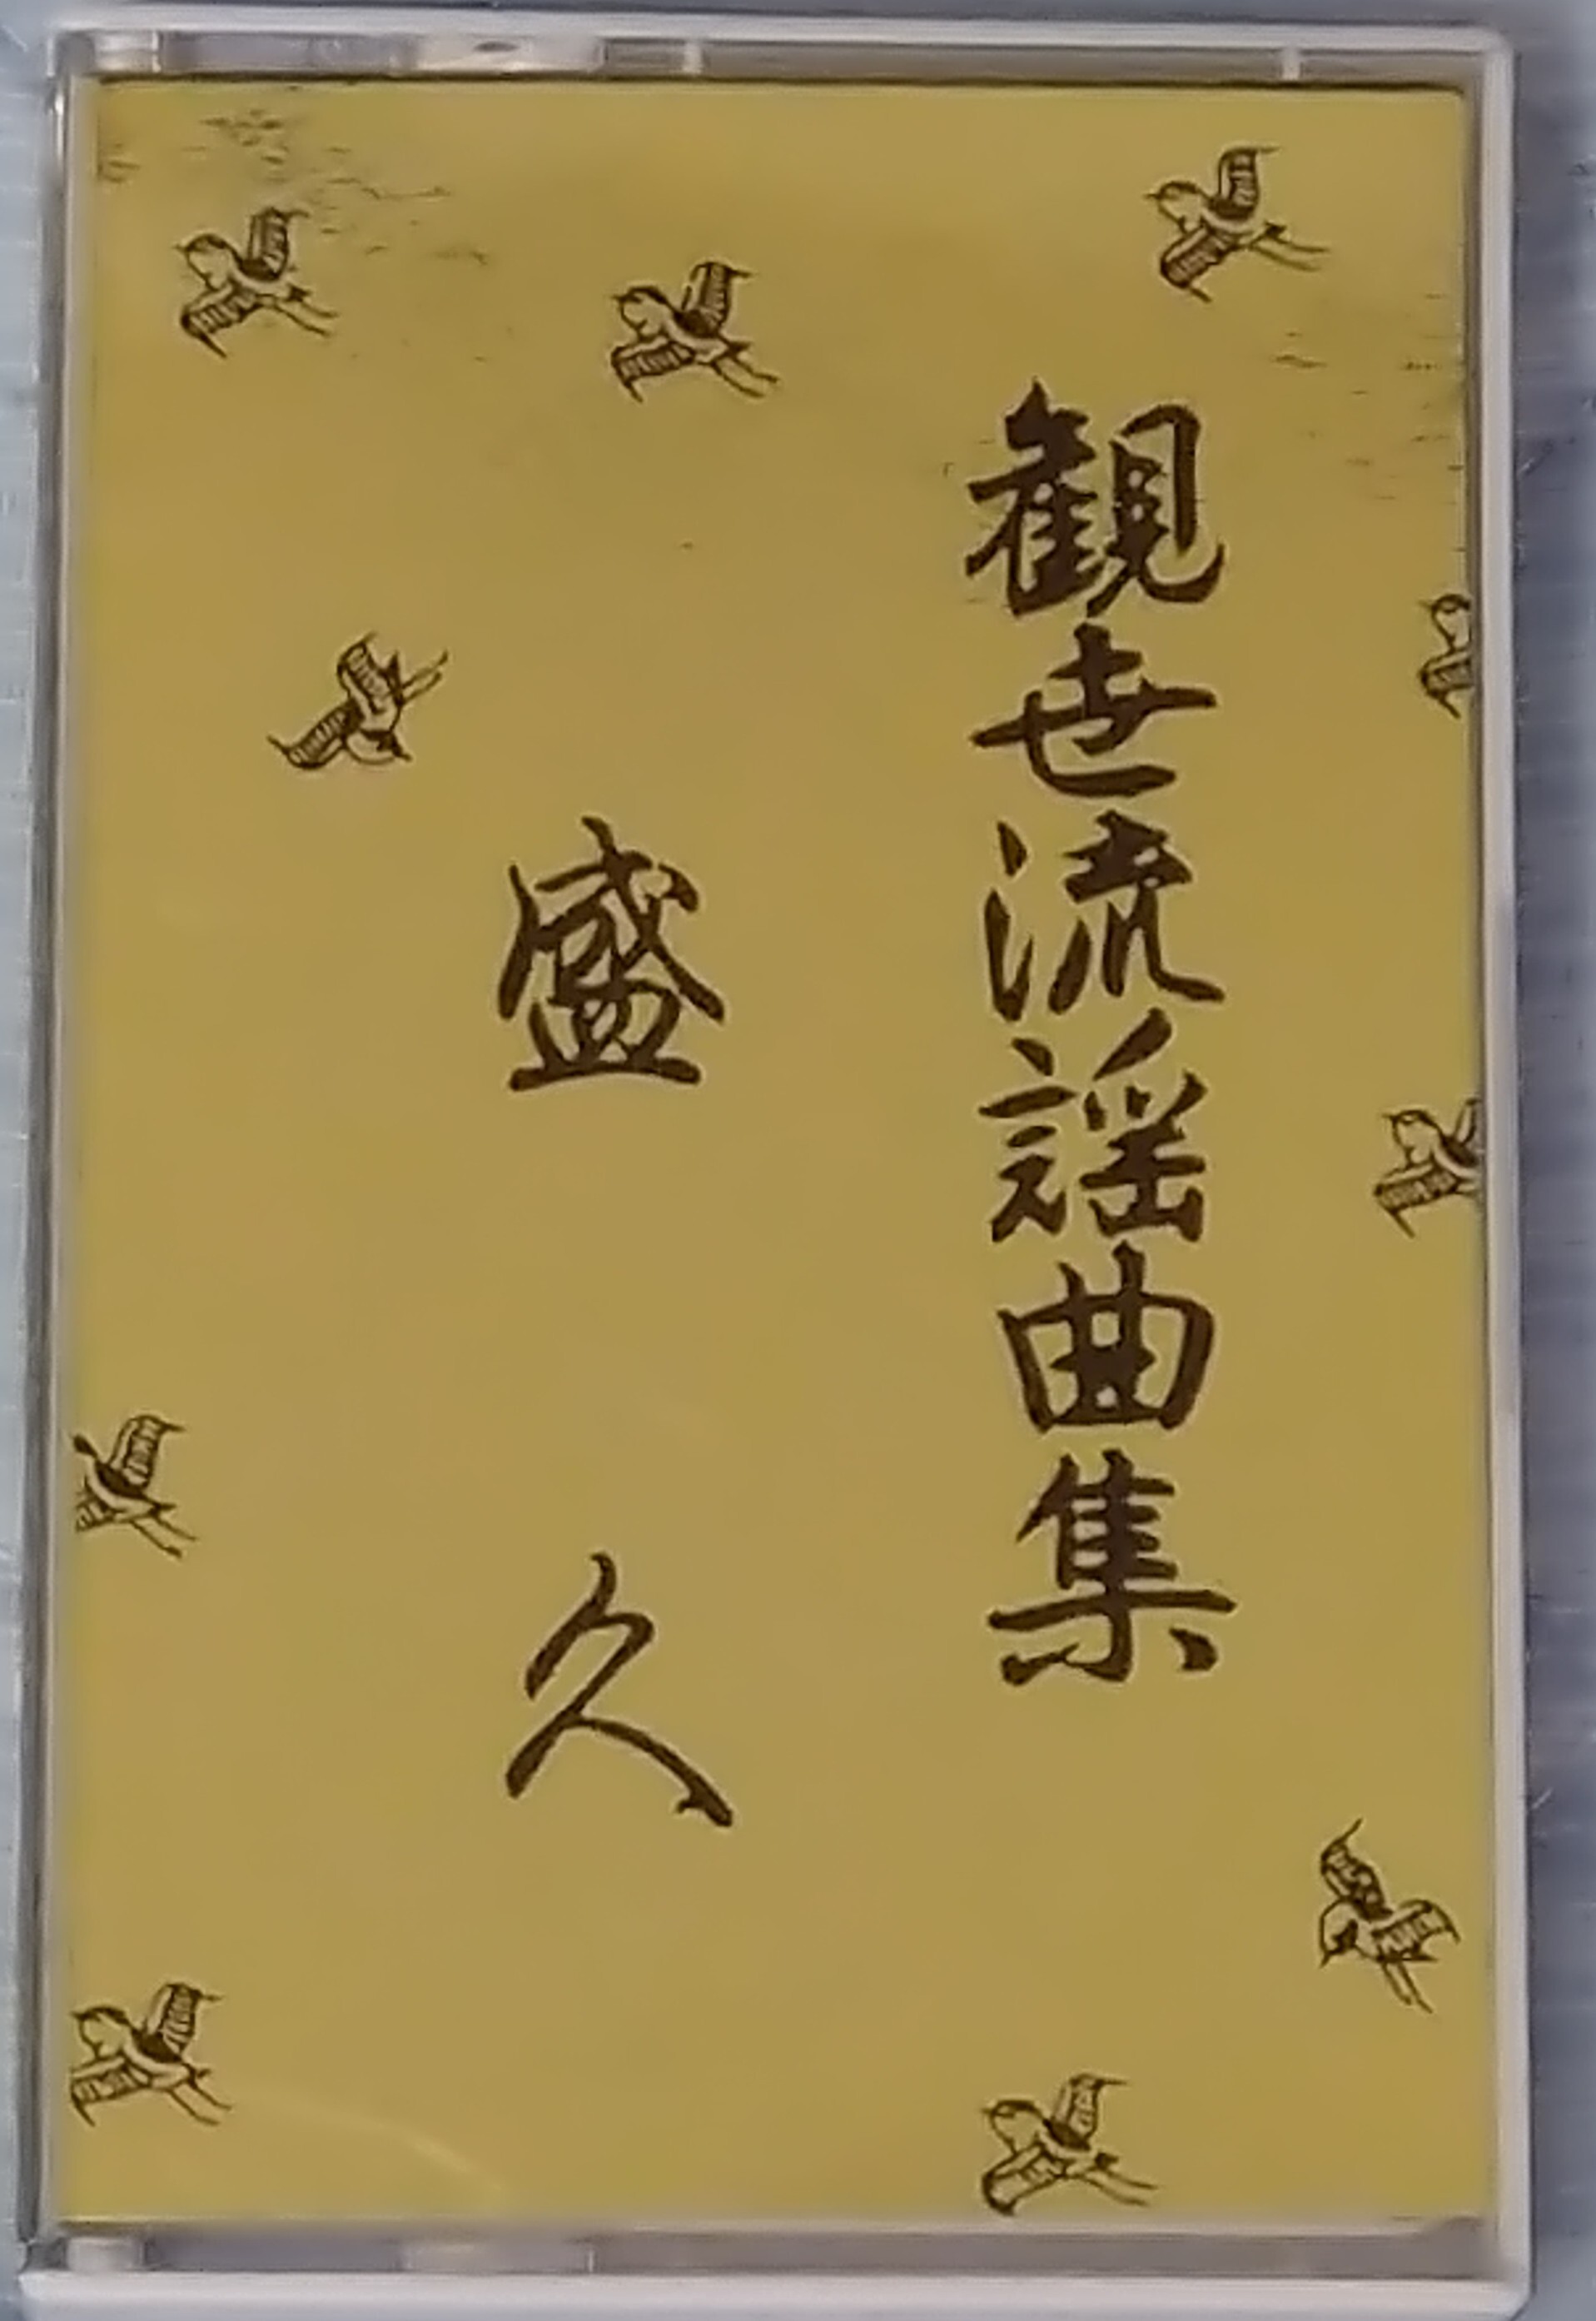 観世流謡曲集
盛久